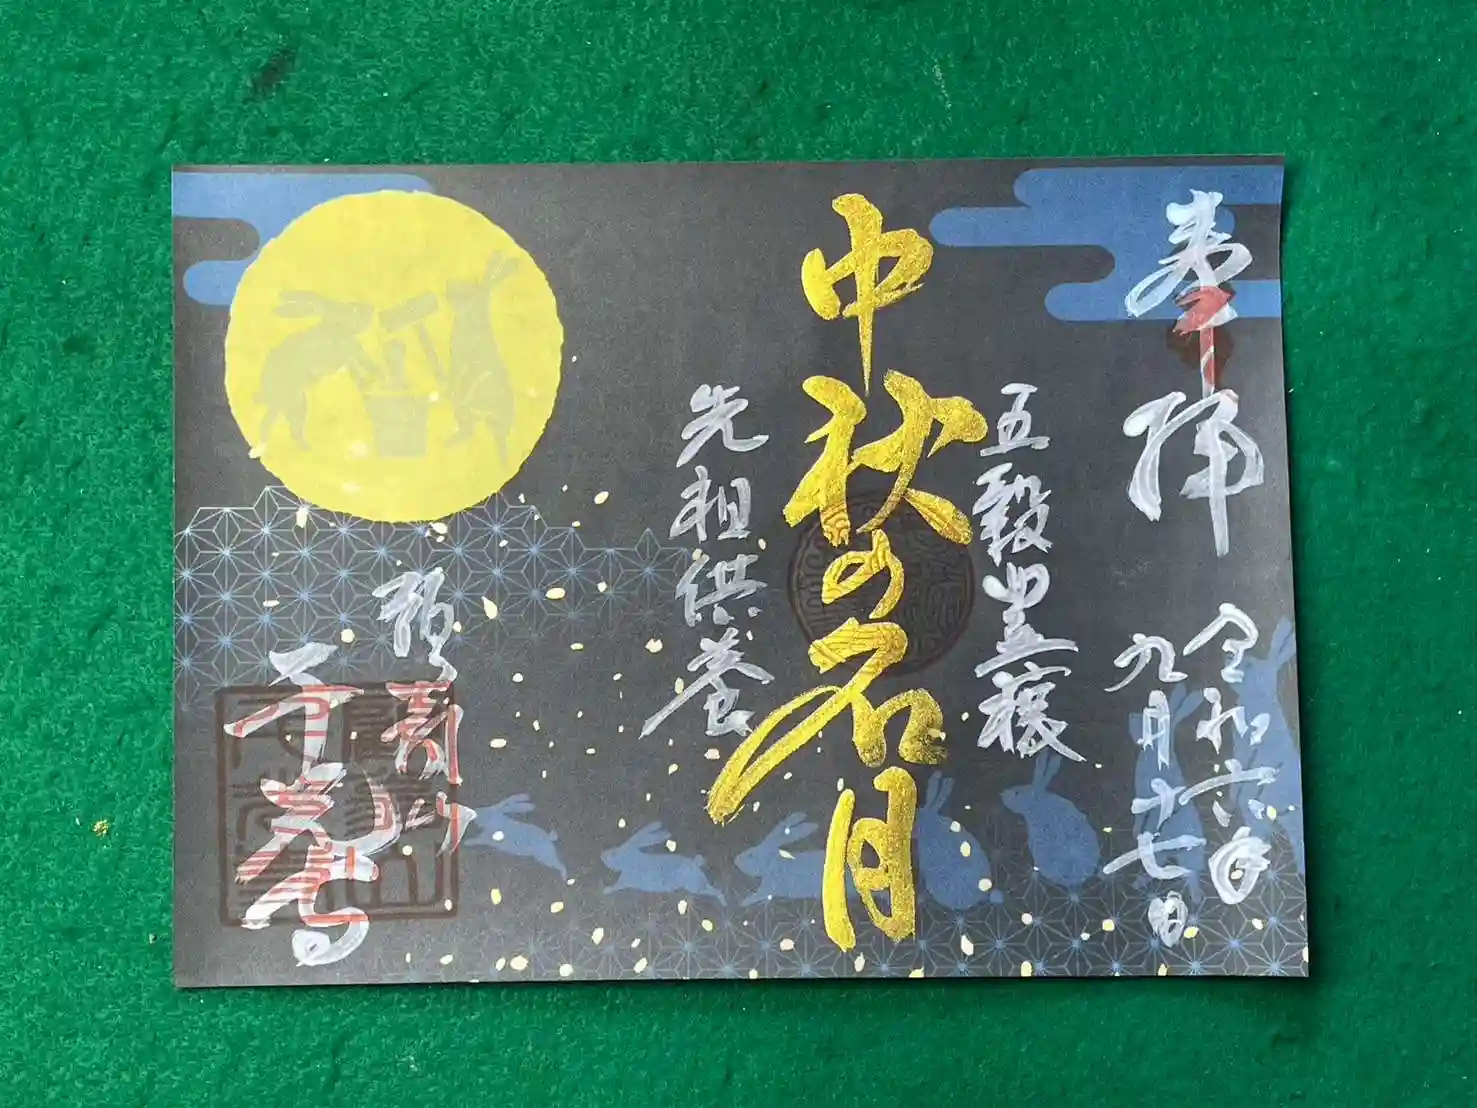 奉拝
令和六年
九月十七日
五穀豊穣
中秋の名月
先祖供養
寿山
千光寺